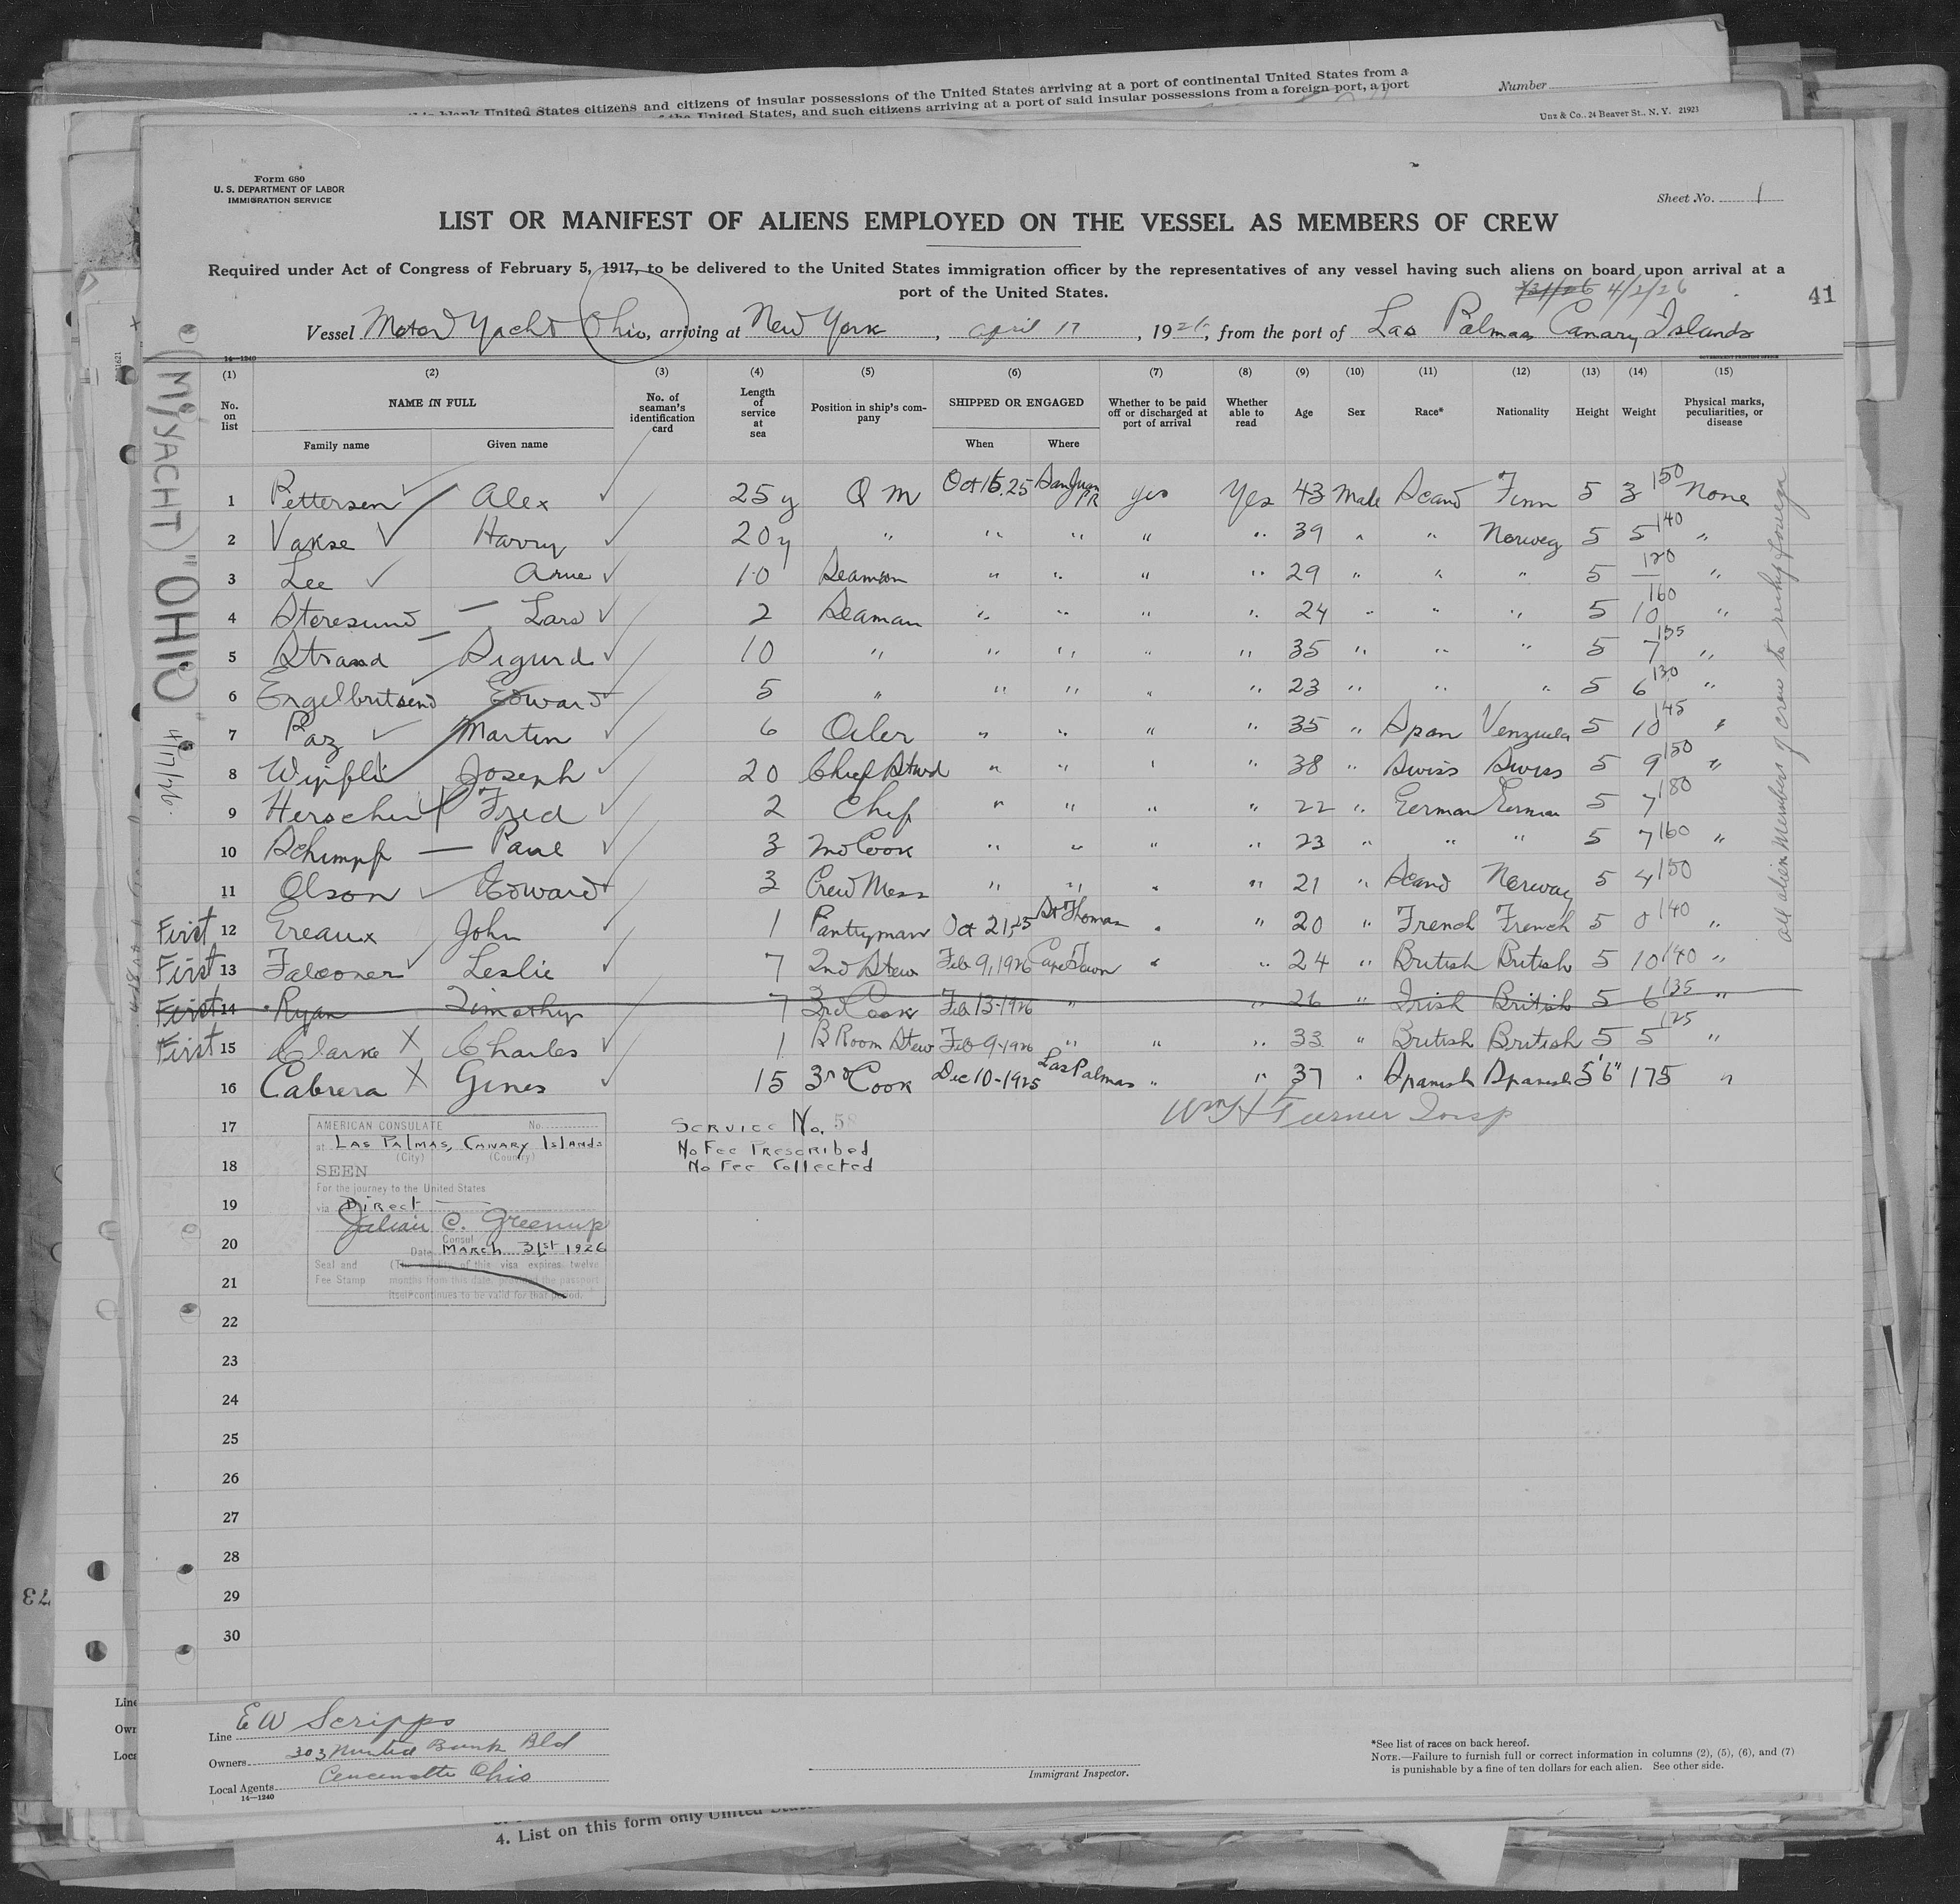 this blank United States citizens and citizens of insular possessions of the United States arriving at a port of continental United States from a
of the United States, and such citizens arriving at a port of said insular possessions from a foreign port, a port
Number
Unz & Co., 24 Beaver St., N. Y. 21923
Form 680
U. S. DEPARTMENT OF LABOR
IMMIGRATION SERVICE
Sheet No. 1
LIST OR MANIFEST OF ALIENS EMPLOYED ON THE VESSEL AS MEMBERS OF CREW
Required under Act of Congress of February 5, 1917, to be delivered to the United States immigration officer by the representatives of any vessel having such aliens on board upon arrival at a
port of the United States.
3/31/26 4/2/26
41
Vessel Motor Yacht Ohio, arriving at New York, april 17, 1926, from the port of Las Palmas Canary Islands
14-1240
(1) (2) (3) (4) (5) (6) (7) (8) (9) (10) (11) (12) (13) (14) (15)
No. on list
NAME IN FULL
Family name Given name
No. of seaman's identification card
Length of service at sea
Position in ship's company
SHIPPED OR ENGAGED
When Where
Whether to be paid off or discharged at port of arrival
Whether able to read
Age Sex Race* Nationality Height Weight
Physical marks, peculiarities, or disease
1 Pettersen Alex 25 y Q M Oct 15.25 San Juan PR yes Yes 43 Male Scand Finn 5 3 150 None
2 Vakse Harry 20 y " " " " " 39 " " Norweg 5 5 140 "
3 Lee Arne 10 Seaman " " " " 29 " " " 5 — 120 "
4 Steresund — Lars 2 Seaman " " " " 24 " " " 5 10 160 "
5 Strand — Sigurd 10 " " " " " 35 " " " 5 7 135 "
6 Engelbritsend Edward 5 " " " " " 23 " " " 5 6 130 "
7 Paz Martin 6 Oiler " " " " 35 " Span Venzuela 5 10 145 "
8 Wipfli Joseph 20 Chief Stwd " " " " 38 " Swiss Swiss 5 9 150 "
9 Herscher Fred 2 Chef " " " " 22 " German German 5 7 180
10 Schimpf — Paul 3 2nd Cook " " " " 23 " " " 5 7 160 "
11 Olson Edward 3 Crew Mess " " " " 21 " Scand Norway 5 4 150
First 12 Ereaux John 1 Pantryman Oct 21,25 St Thomas " " 20 " French French 5 0 140 "
First 13 Falconer Leslie 7 2nd Stew Feb 9, 1926 Cape Town " " 24 " British British 5 10 140 "
First 14 Ryan Timothy 7 3rd Cook Feb 13-1926 " " 26 " Irish British 5 6 135 "
First 15 Clarke X Charles 1 B Room Stew Feb 9-1926 " " " 33 " British British 5 5 125 "
16 Cabrera X Gines 15 3rd Cook Dec 10-1925 Las Palmas " " 37 " Spanish Spanish 5'6" 175 "
Wm H Turner Insp
17
18
19
20
21
22
23
24
25
26
27
28
29
30
AMERICAN CONSULATE No.
at Las Palmas, Canary Islands
(City) (Country)
SEEN
For the journey to the United States
via Direct
Julian C. Greenup
Consul
Date March 31st 1926
Seal and Fee Stamp
(The validity of this visa expires twelve
months from this date, provided the passport
itself continues to be valid for that period.
Service No. 58
No Fee Prescribed
No Fee Collected
(M/YACHT) "OHIO" 4/17/26.
all alien Members of crew to reship foreign
Line E W Scripps
Owners 303 United Bank Bld
Local Agents Cencenatte Ohio
14-1240
Immigrant Inspector.
*See list of races on back hereof.
NOTE.—Failure to furnish full or correct information in columns (2), (5), (6), and (7)
is punishable by a fine of ten dollars for each alien. See other side.
4. List on this form only United
73